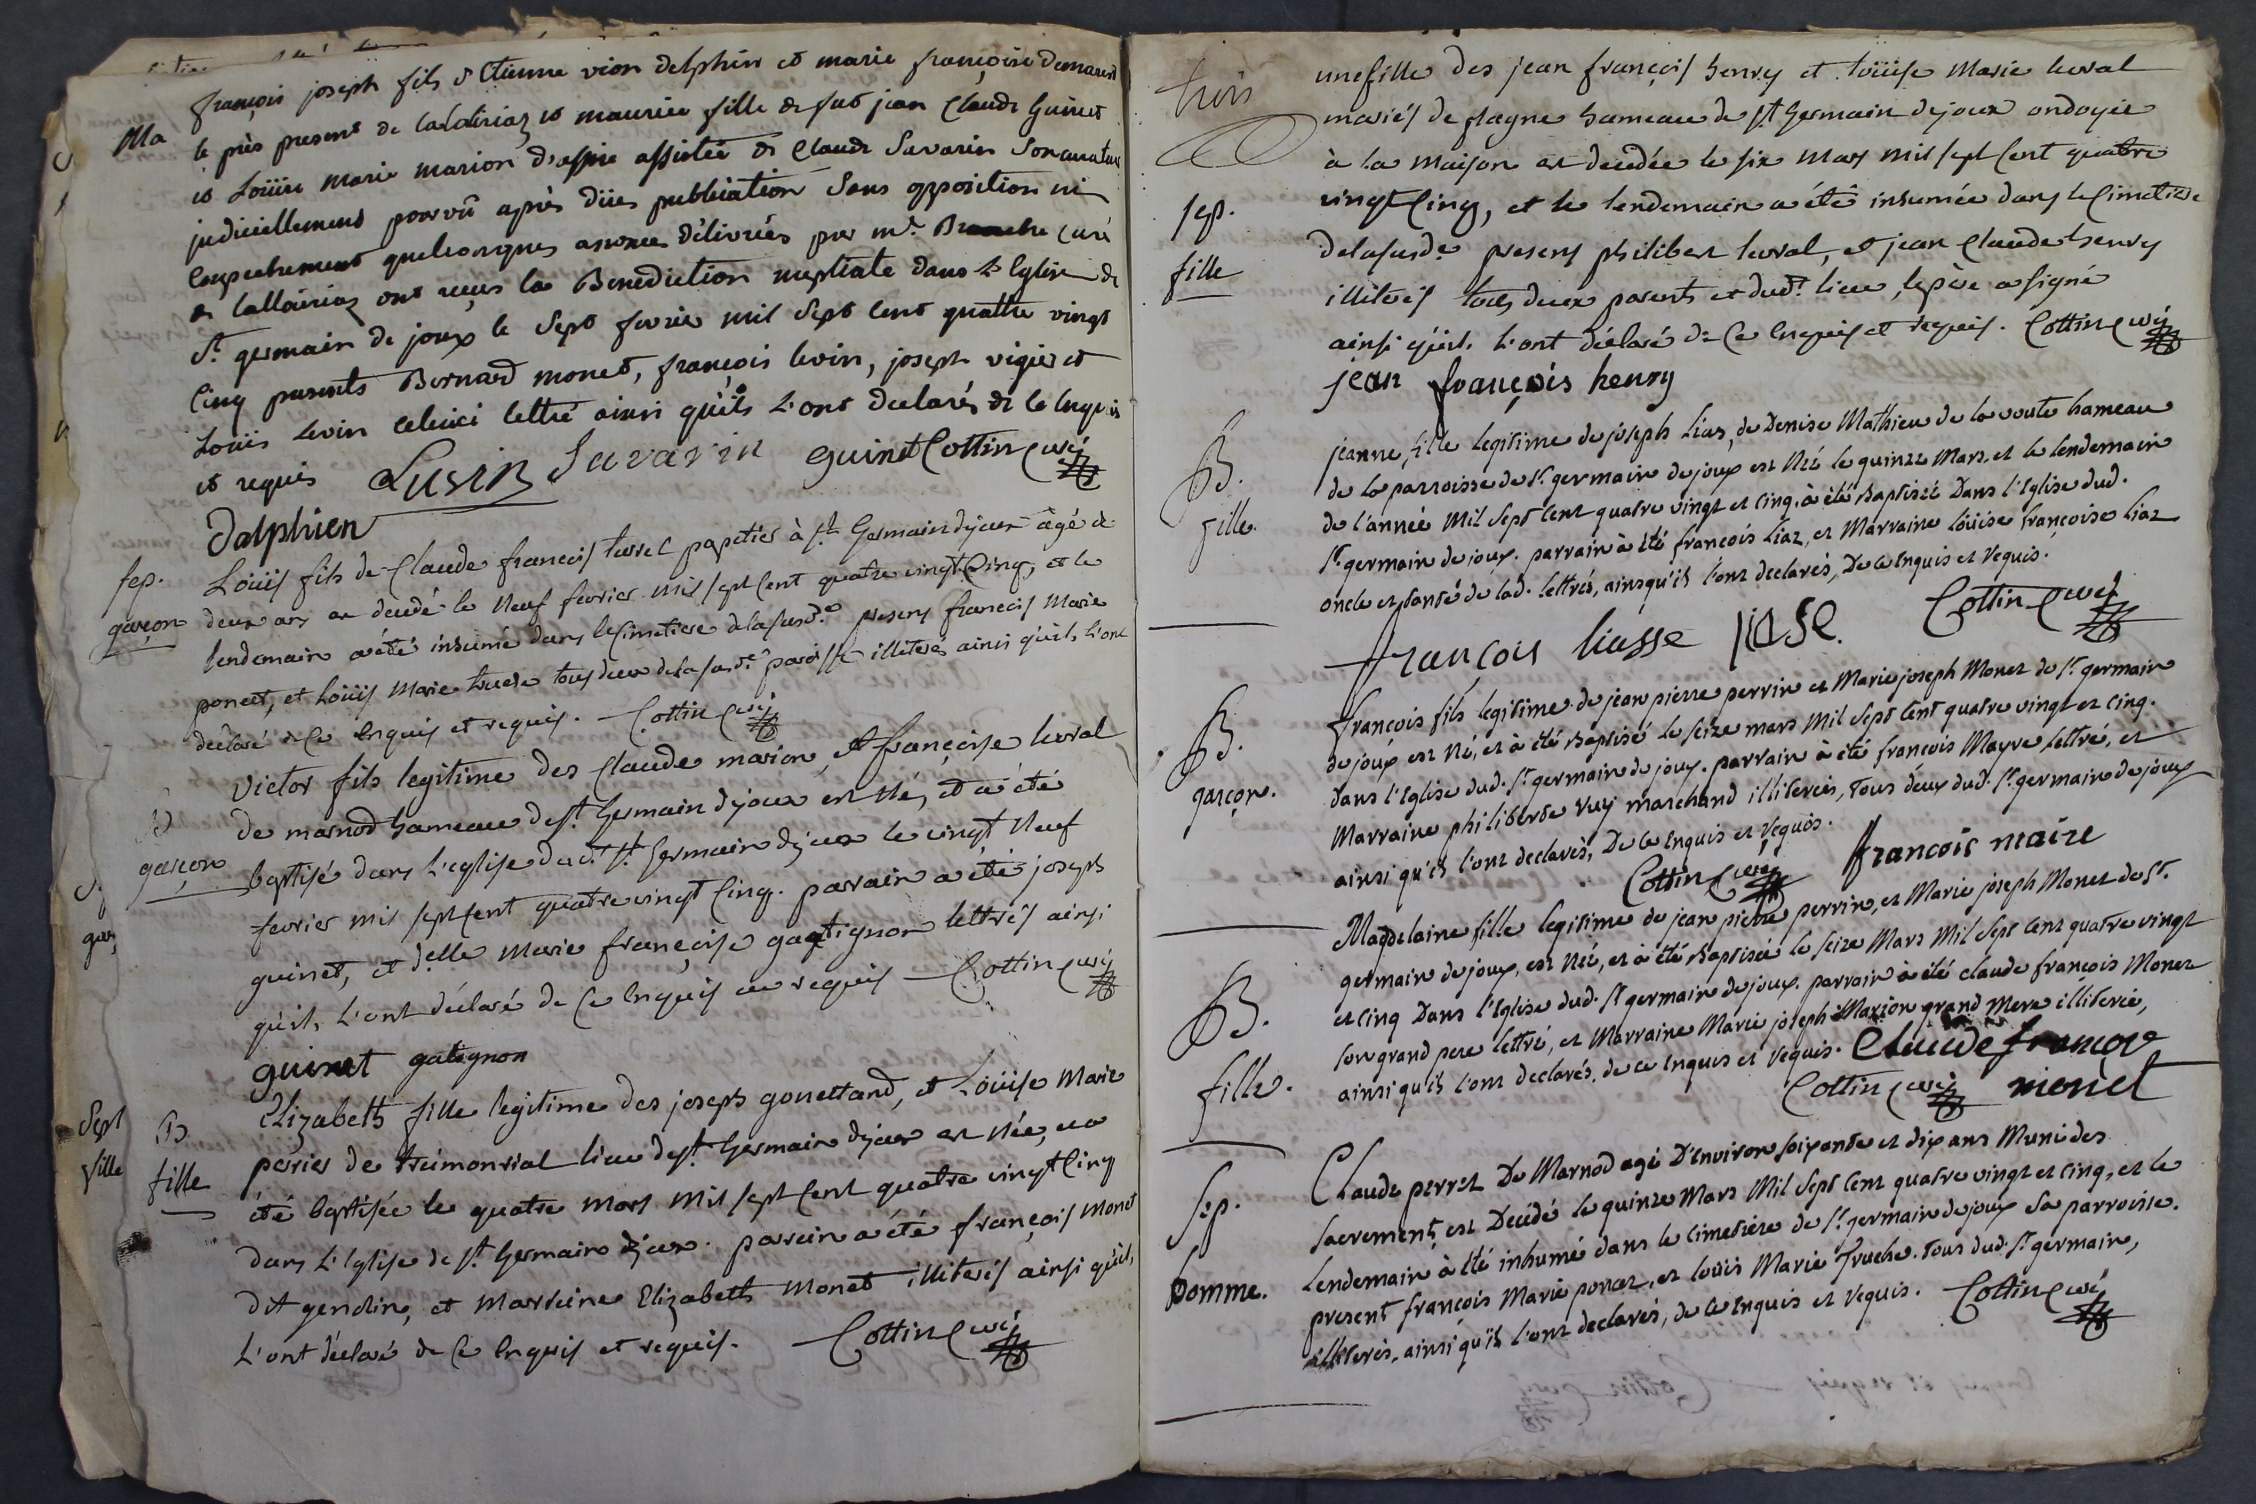 Ma
françois joseph fils d'Etienne vion delphin et marie françoise
le père present de lalleiriaz et mauriee fille de fut jean Claude Guinet
et Loüise marie marion d'assiie assistée de Claude Savarin Son curateur
judiciellement pourvû après dües publication Sans opposition ni
Empechement quelconques anoncee délivrées par mr. curé
de lalleiriaz ont reçus la Benediction nuptiale dans L'Eglise de
St. germain de joux le Sept fevrier mil Sept Cent quattre vingt
Cinq presents Bernard monet, françois levin, joseph vigier et
Loüis levin celuici lettré ainsi qu'ils L'ont declarés de Ce Enquis
et requis Lusin Savarin guinet Cottin curé
Dalphien
sep.
garçon
Loüis fils de Claude francois turrel papetier à St. Germain dejoux âgé de
deux ans est decedé le Neuf fevrier mil sept Cent quatre vingt Cinq, et le
lendemain a été inhumé dans le Cimetiere de la susde. presens francois Marie
poncet, et Loüis Marie truche tous deux de la susde. paroisse illiterés ainsi qu'ils l'ont
déclaré de Ce Enquis et requis. Cottin curé
B
garçon
Victor fils legitime des Claude marion, et françoise levral
de marnod hameau de St. Germain dejoux est Né, et a été
baptisé dans L'eglise dud. St. Germain dejoux le vingt Neuf
fevrier mil sept Cent quatre vingt Cinq. parrain a été joseph
guinet, et delle marie françoise gagtignon lettrés ainsi
qu'ils L'ont déclaré de Ce Enquis et requis Cottin curé
guinet gatignon
Sept
fille
B
fille
Elizabeth fille legitime des joseph gouettand, et Loüise Marie
perrier de trémontial lieu de St. Germain dejoux est Née, et a
été baptisée le quatre mars mil sept Cent quatre vingt Cinq
dans L'Eglise de St. Germain dejoux. parrein a été françois monet
dit gendin, et marreine Elizabeth monet illiterés ainsi qu'ils
L'ont déclaré de Ce Enquis et requis. Cottin curé
trois
sep.
fille
une fille des jean françois henry et Loüise Marie levral
mariés de plagne hameau de St Germain dejoux ondoyée
à la maison est decedée le six Mars mil sept Cent quatre
vingt Cinq, et le lendemain a été inhumée dans le Cimetiere
de la susde. presens philibert levral, et jean Claude henry
illiterés tous deux parents et dudt. lieu, le père a signé
ainsi qu'ils L'ont déclaré de Ce Enquis et requis. Cottin curé
jean françois henry
B.
fille
jeanne, fille legitime de joseph Lias, de Denise Mathieu de la voute hameau
de la parroisse de St. germain de joux est Née le quinze Mars, et le lendemain
de l'année Mil Sept Cent quatre vingt et cinq, à été Baptisée Dans l'Eglise dud.
St. germain de joux. parrain à été francois Liaz, et Marraine Loüise françoise Liaz
oncle et tante de lad. lettrés, ainsqu'ils l'ont declarés, De ce Enquis et Requis.
Cottin curé
françois liasse liase.
B.
garçon.
francois fils legitime de jean pierre perrin et Marie joseph Monet de St. germain
de joux est Né, et à été Baptisé le seize mars Mil Sept Cent quatre vingt et cinq.
Dans l'Eglise dud. St. germain de joux. parrain à été francois Mayre lettré, et
Marraine philiberte Ruy marchand illiterés, Tous deux dud. St. germain de joux
ainsi qu'ils l'ont declarés, De ce Enquis et Requis.
Cottin curé francois maire
B.
fille.
Magdelaine fille legitime de jean pierre perrin, et Marie joseph Monet de St.
germain de joux, est Née, et à été Baptisée le seize Mars Mil Sept Cent quatre vingt
et cinq Dans l'Eglise dud. St. germain de joux. parrain à été claude francois Monet
son grand pere lettré, et Marraine Marie joseph Marion grand Mere illiterée,
ainsi qu'ils l'ont declarés, de ce Enquis et Requis. Claude francoy
Cottin curé monet
Sep.
homme.
Claude perret De Marnod agé D'Environ soixante et dix ans Muni des
sacrements est Decédé le quinze Mars Mil Sept Cent quatre vingt et cinq, et le
Lendemain à été inhumé dans le cimetiere de St. germain de joux Sa parroisse.
present françois Marie poncet, et Loüis Marie Truche. Tous dud. St. germain,
illiterés, ainsi qu'ils l'ont declarés, de ce Enquis et Requis. Cottin curé